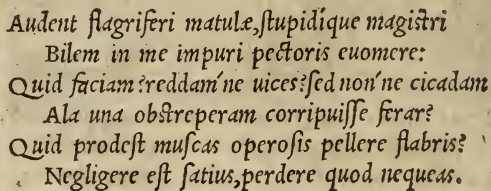 Audent flagriferi matulæ, stupidíque magistri
Bilem in me impuri pectoris euomere:
Quid faciam? reddam'ne uices? sed non'ne cicadam
Ala una obstreperam corripuisse ferar?
Quid prodest muscas operosis pellere flabris?
Negligere est satius, perdere quod nequeas.